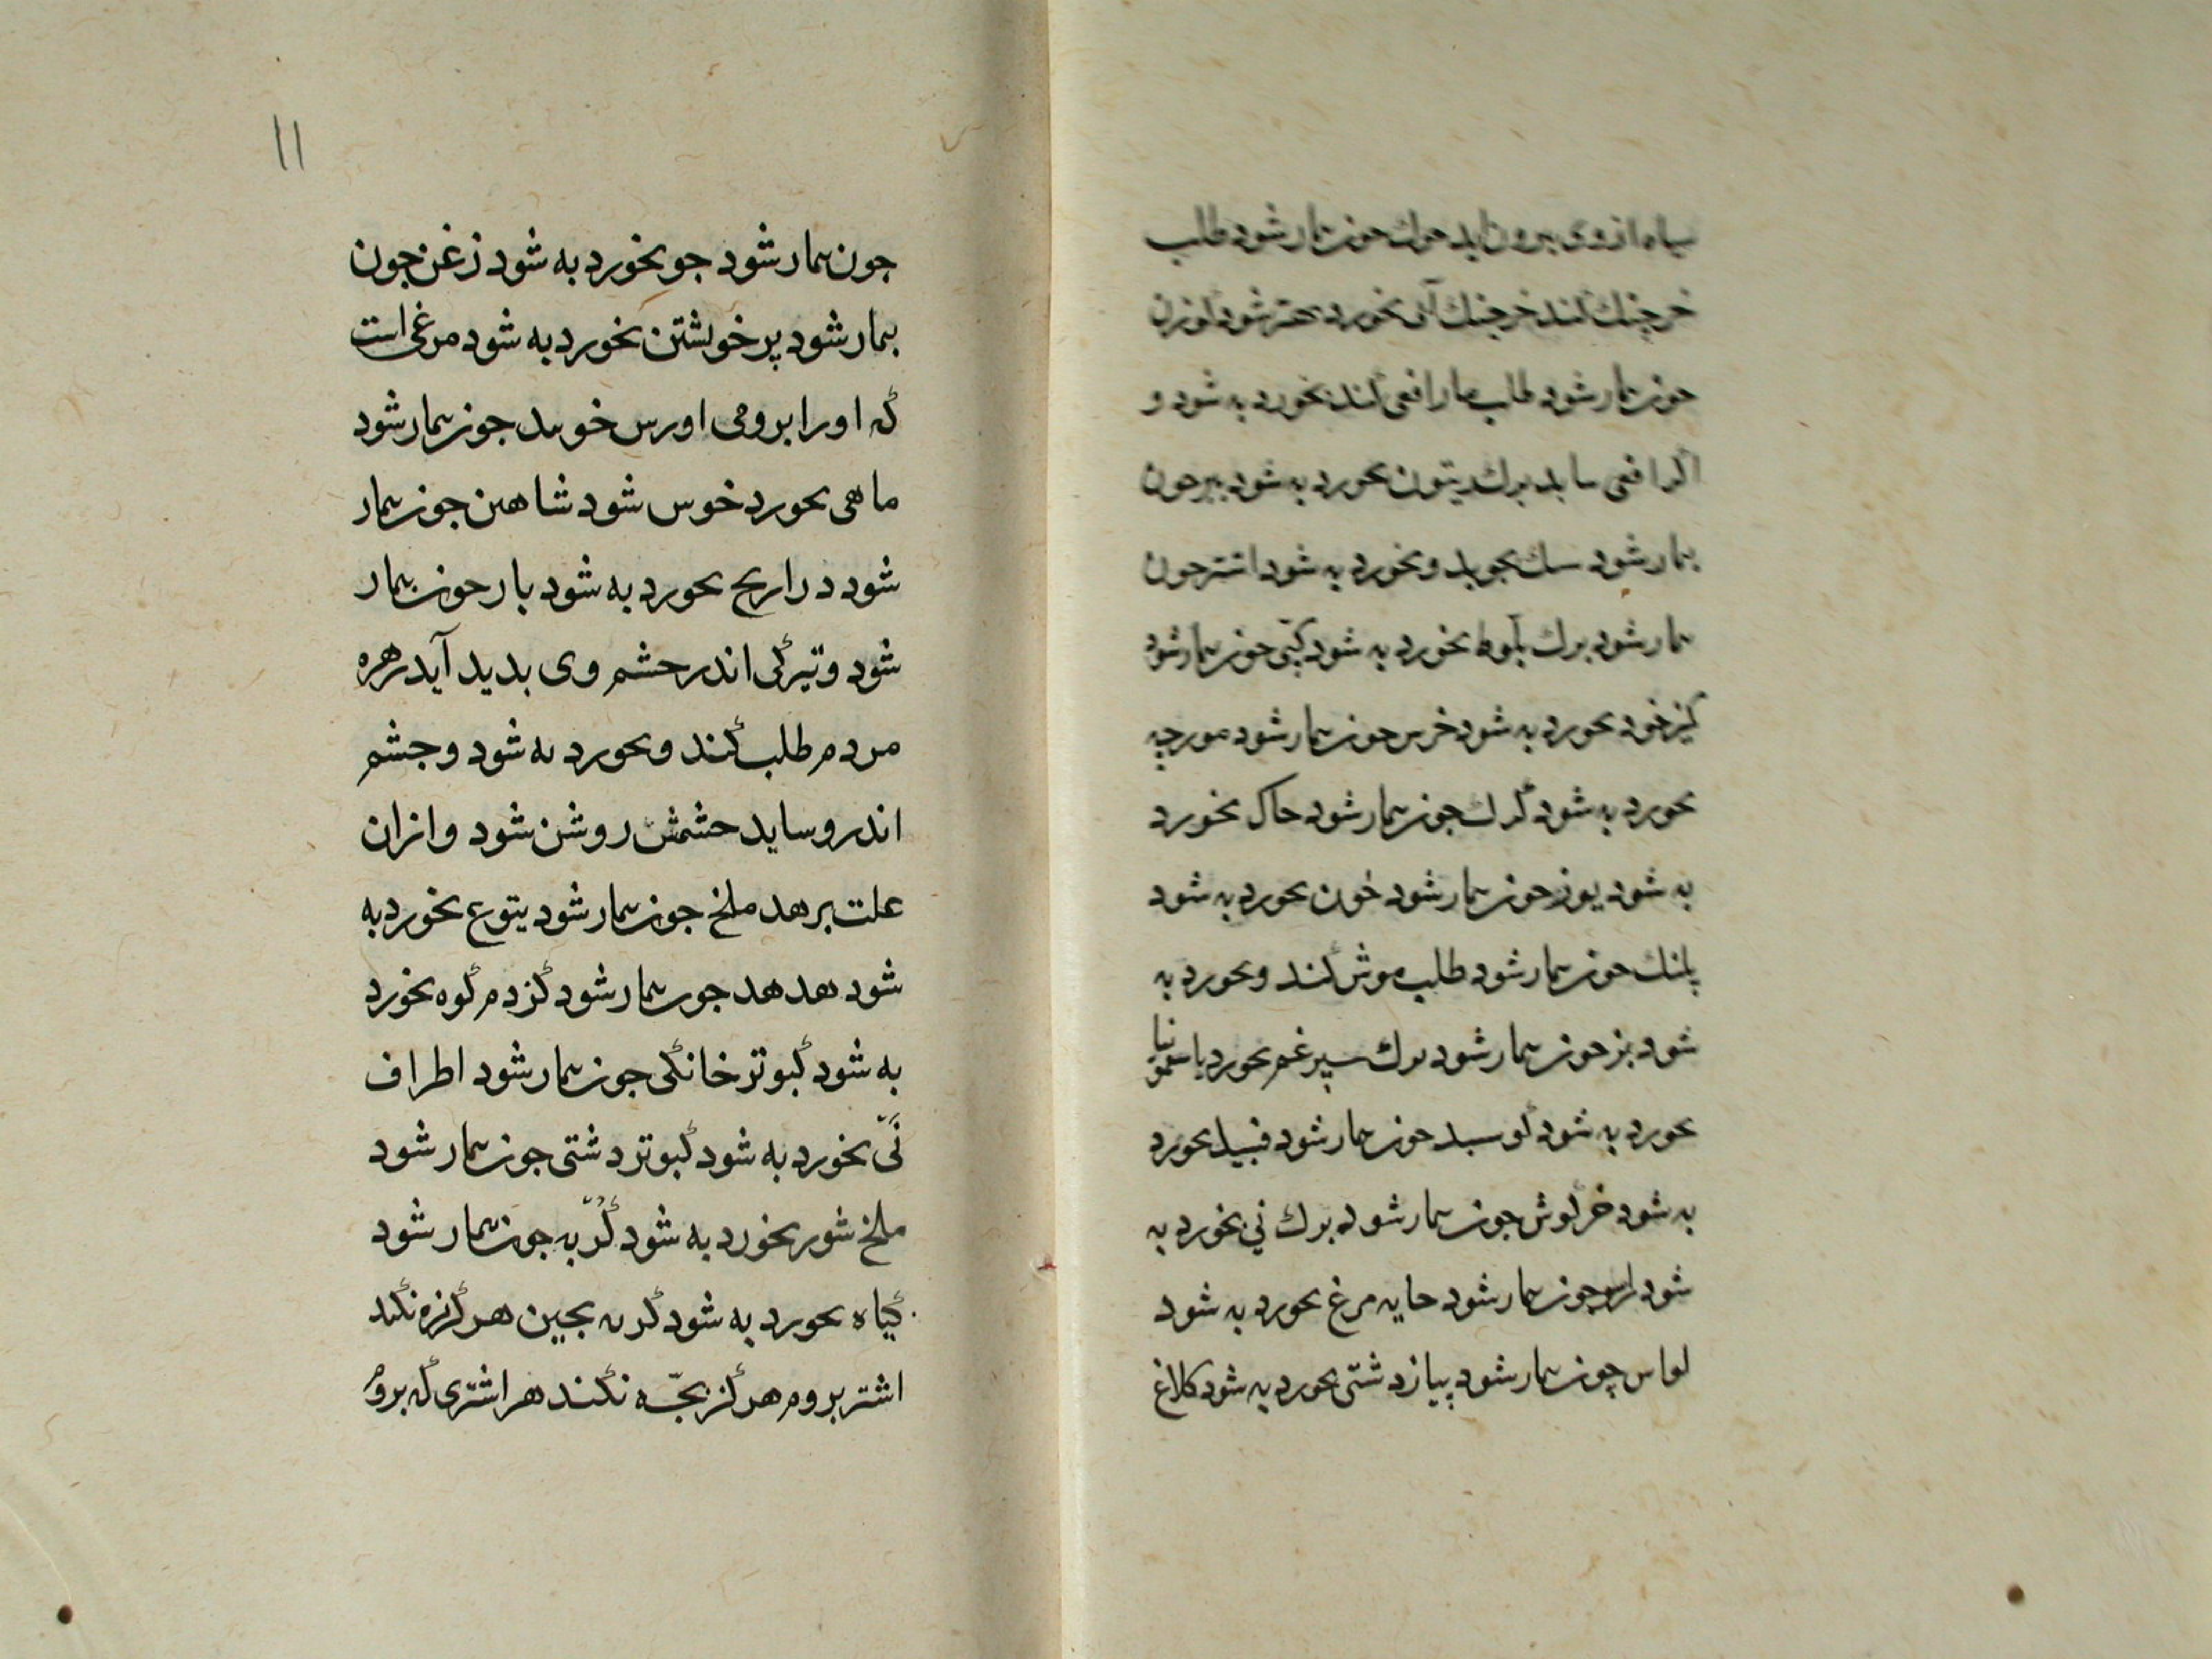 سیاه از وی بیرون اید خوک چون بیمار شود طلب
خرچنک کند خرچنک آبی بخورد بهتر شود کوزن
چون بیمار شود طلب مار افعی کند بخورد به شود و
اکر افعی نیابد برک زیتون بخورد به شود ببر چون
بیمار شود سک بجوید و بخورد به شود اشتر چون
بیمار شود برک بلوط بخورد به شود کپی چون بیمار شود
کیز خود بخورد به شود خرس چون بیمار شود مورچه
بخورد به شود کرک چون بیمار شود خاک بخورد
به شود یوز چون بیمار شود خون بخورد به شود
پلنک چون بیمار شود طلب موش کند و بخورد به
شود بز چون بیمار شود برک سپرغم بخورد یا سقمونیا
بخورد به شود کوسبند چون بیمار شود بخورد
به شود خرکوش چون بیمار شود برک نی بخورد به
شود چون بیمار شود خایه مرغ بخورد به شود
چون بیمار شود پیاز دشتی بخورد به شود کلاغ
۱۱
چون بیمار شود جو بخورد به شود زغن چون
بیمار شود پر خویشتن بخورد به شود مرغی است
که او را برومی خوانند چون بیمار شود
ماهی بخورد خوش شود شاهین چون بیمار
شود دراریح بخورد به شود باز چون بیمار
شود و تیرکی اندر چشم وی بدید آید زهره
مردم طلب کند و بخورد به شود و چشم
اندرو ساید چشمش روشن شود و ازان
علت برهد ملخ چون بیمار شود یتوع بخورد به
شود هدهد چون بیمار شود کزدم کوه بخورد
به شود کبوتر خانکی چون بیمار شود اطراف
نَیّ بخورد به شود کبوتر دشتی چون بیمار شود
ملخ شور بخورد به شود کُرّبه چون بیمار شود
کیاه بخورد به شود کربه بچین هرکز زه نکند
اشتر بروم هرکز بچّه نکند هر اشتری که بروُ